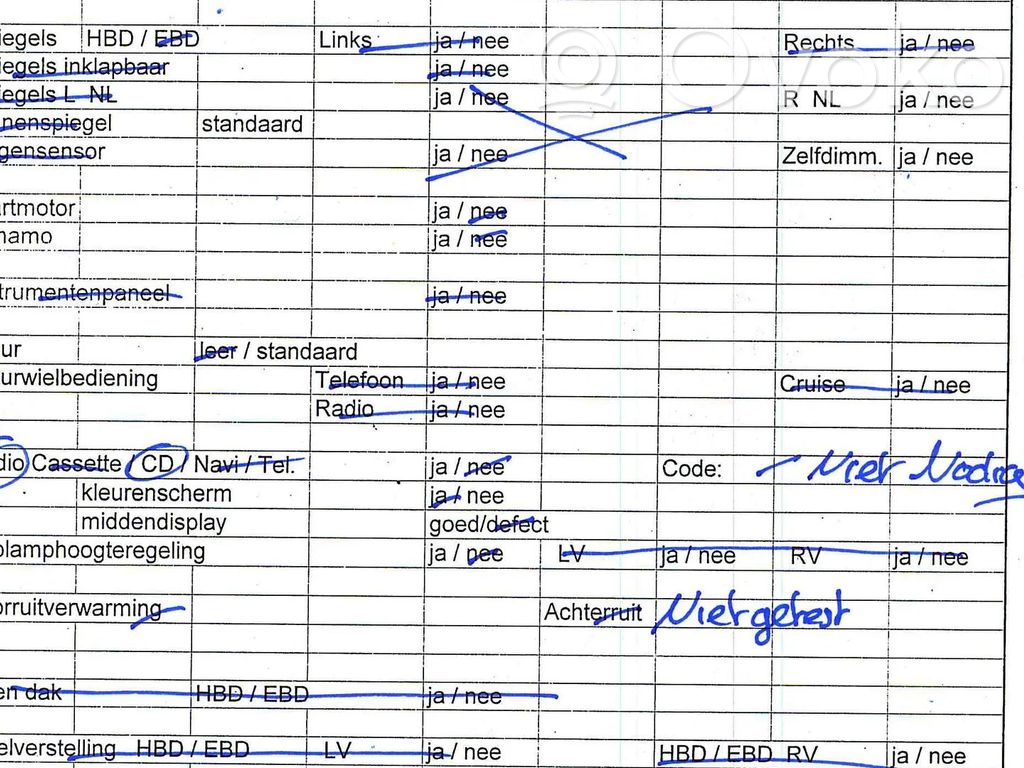 iegels HBD / EBD Links ja / nee Rechts ja / nee
iegels inklapbaar ja / nee
iegels L NL ja / nee R NL ja / nee
nenspiegel standaard
gensensor ja / nee Zelfdimm. ja / nee
artmotor ja / nee
namo ja / nee
trumentenpaneel ja / nee
ur leer / standaard
urwielbediening Telefoon ja / nee Cruise ja / nee
Radio ja / nee
dio Cassette / CD / Navi / Tel. ja / nee Code: Niet Nodig
kleurenscherm ja / nee
middendisplay goed/defect
plamphoogteregeling ja / nee LV ja / nee RV ja / nee
orruitverwarming Achterruit Niet getest
en dak HBD / EBD ja / nee
elverstelling HBD / EBD LV ja / nee HBD / EBD RV ja / nee
Ovoko